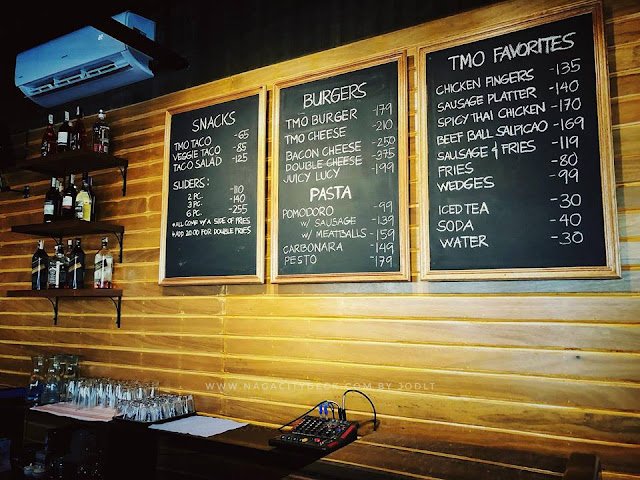 SNACKS
TMO TACO -65
VEGGIE TACO -85
TACO SALAD -125
SLIDERS:
2 PC. -110
3 PC. -140
6 PC. -255
*ALL COME W/ A SIDE OF FRIES
*ADD 20.00 FOR DOUBLE FRIES
BURGERS
TMO BURGER -179
TMO CHEESE -210
BACON CHEESE -250
DOUBLE CHEESE -375
JUICY LUCY -199
PASTA
POMODORO -99
W/ SAUSAGE -139
W/ MEATBALLS -159
CARBONARA -149
PESTO -179
TMO FAVORITES
CHICKEN FINGERS -135
SAUSAGE PLATTER -140
SPICY THAI CHICKEN -170
BEEF BALL SALPICAO -169
SAUSAGE & FRIES -119
FRIES -80
WEDGES -99
ICED TEA -30
SODA -40
WATER -30
WWW.NAGACITYDECK.COM BY JODLT